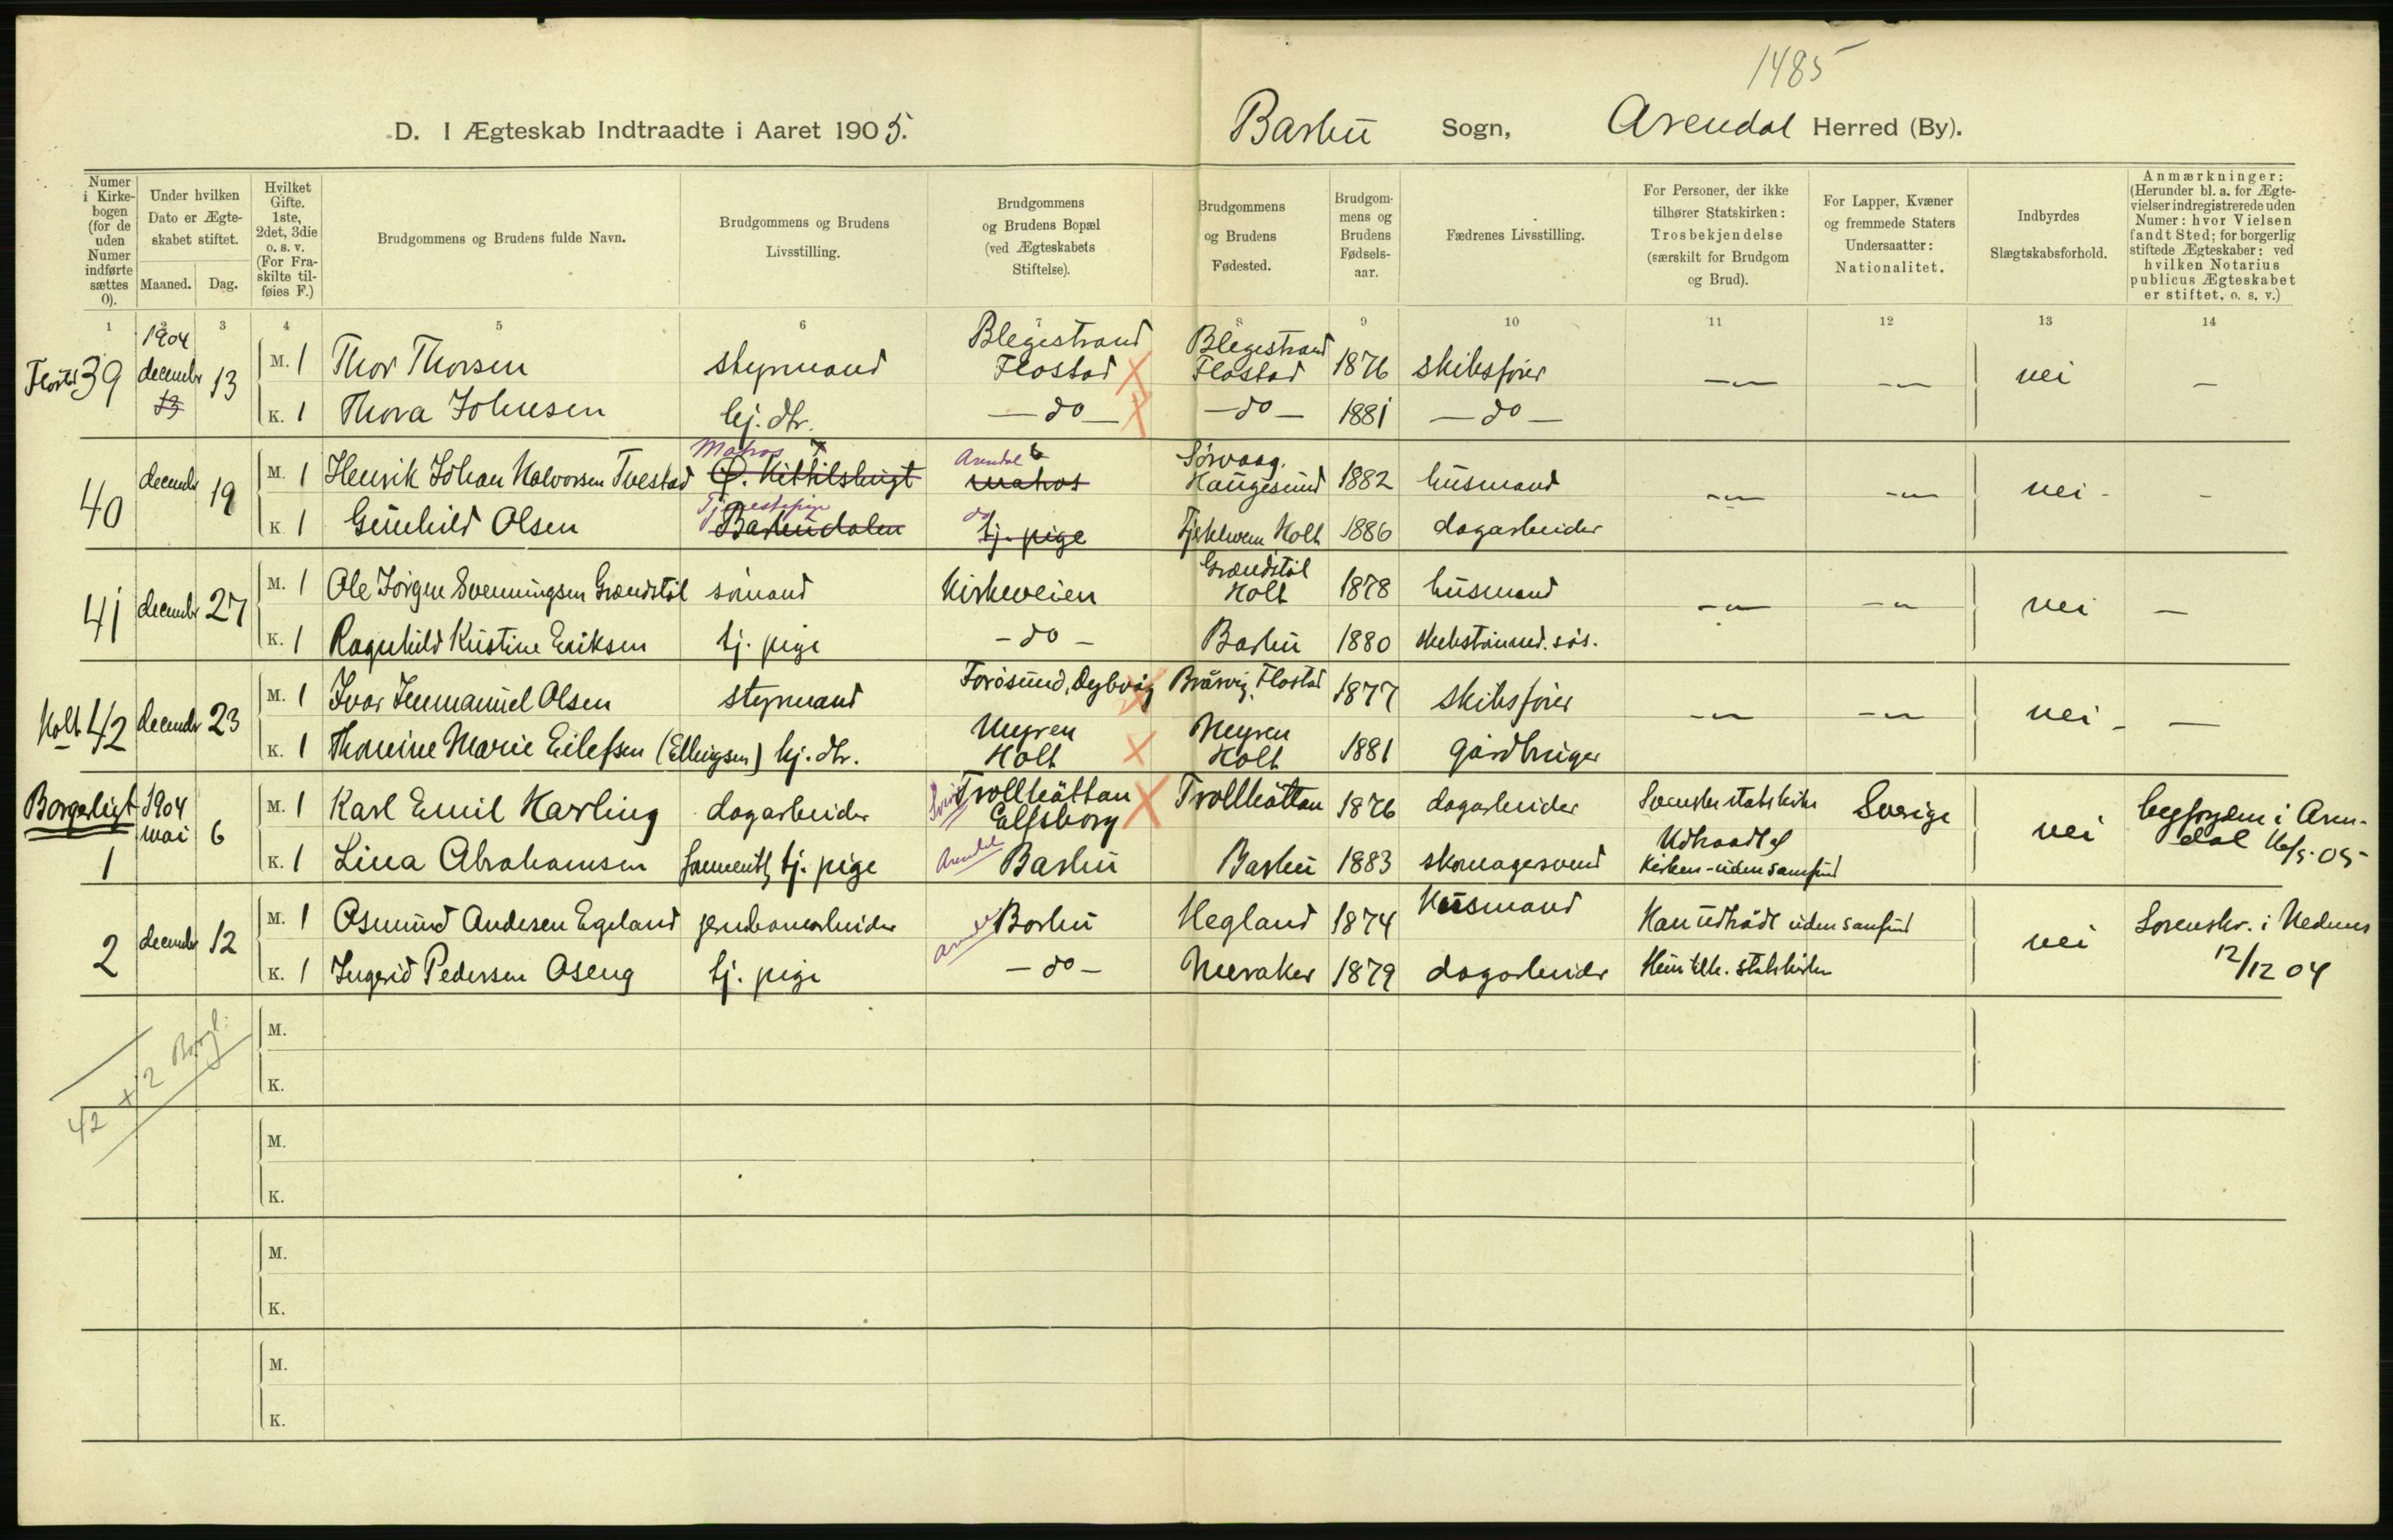 1485
D. I Ægteskab Indtraadte i Aaret 1905. Barbu Sogn, Arendal Herred (By).
Numer i Kirkebogen (for de uden Numer indførte sættes 0).
Under hvilken Dato er Ægteskabet stiftet.
Maaned. Dag.
Hvilket Gifte. 1ste, 2det, 3die o. s. v. (For Fraskilte tilføies F.)
Brudgommens og Brudens fulde Navn.
Brudgommens og Brudens Livsstilling.
Brudgommens og Brudens Bopæl (ved Ægteskabets Stiftelse).
Brudgommens og Brudens Fødested.
Brudgommens og Brudens Fødselsaar.
Fædrenes Livsstilling.
For Personer, der ikke tilhører Statskirken: Trosbekjendelse (særskilt for Brudgom og Brud).
For Lapper, Kvæner og fremmede Staters Undersaatter: Nationalitet.
Indbyrdes Slægtskabsforhold.
Anmærkninger: (Herunder bl. a. for Ægtevielser indregistrerede uden Numer: hvor Vielsen fandt Sted; for borgerlig stiftede Ægteskaber: ved hvilken Notarius publicus Ægteskabet er stiftet, o. s. v.)
1 2 3 4 5 6 7 8 9 10 11 12 13 14
1904
39 decembr 13 M. 1 Thor Thorsen styrmand Blegestrand Flostad Blegestrand Flostad 1876 skibsfører nei —
K. 1 Thora Johnsen hj. dtr. — do — — do — 1881 — do —
Matros Arendal
40 decembr 19 M. 1 Henrik Johan Halvorsen Tvestad matros Sørvaag. Haugesund 1882 husmand nei -
Tjenestepige do
K 1 Gunhild Olsen Barbudalen tj. pige Holt 1886 dagarbeider
41 decembr 27 M. 1 Ole Jørgen Svenningsen Grændstøl sømand Kirkeveien Grændstøl Holt 1878 husmand nei —
K. 1 Ragnhild Kristine Eriksen tj. pige — do — Barbu 1880
Holt 42 decembr 23 M. 1 Ivar Immanuel Olsen styrmand Forøsund, Dybvåg Bråsvig, Flostad 1877 skibsfører nei - —
K. 1 Thomine Marie Eilefsen (Ellingsen) hj. dtr. Myren Holt Myren Holt 1881 gårdbruger
Borgerligt 1904
1 mai 6 M. 1 Karl Emil Karling dagarbeider Trollhättan Elfsborg Trollhättan 1876 dagarbeider Svenske statskirke Sverige nei byfogden i Arendal 16/5-05
K. 1 Lina Abrahamsen tj. pige Arendal Barbu Barbu 1883 skomagersvend Udtraadt af Kirken - uden samfund
2 decembr 12 M. 1 Osmund Andersen Egeland jernbanearbeider Barbu Hegland 1874 Husmand Han udtrådt uden samfund nei Sorenskr. i Nedenes 12/12 04
K. 1 Ingerid Pedersen Aseng tj. pige — do — Meraker 1879 dagarbeider Hun tilh. statskirken
42 + 2 Borgl.
M.
K.
M.
K.
M.
K.
M.
K.